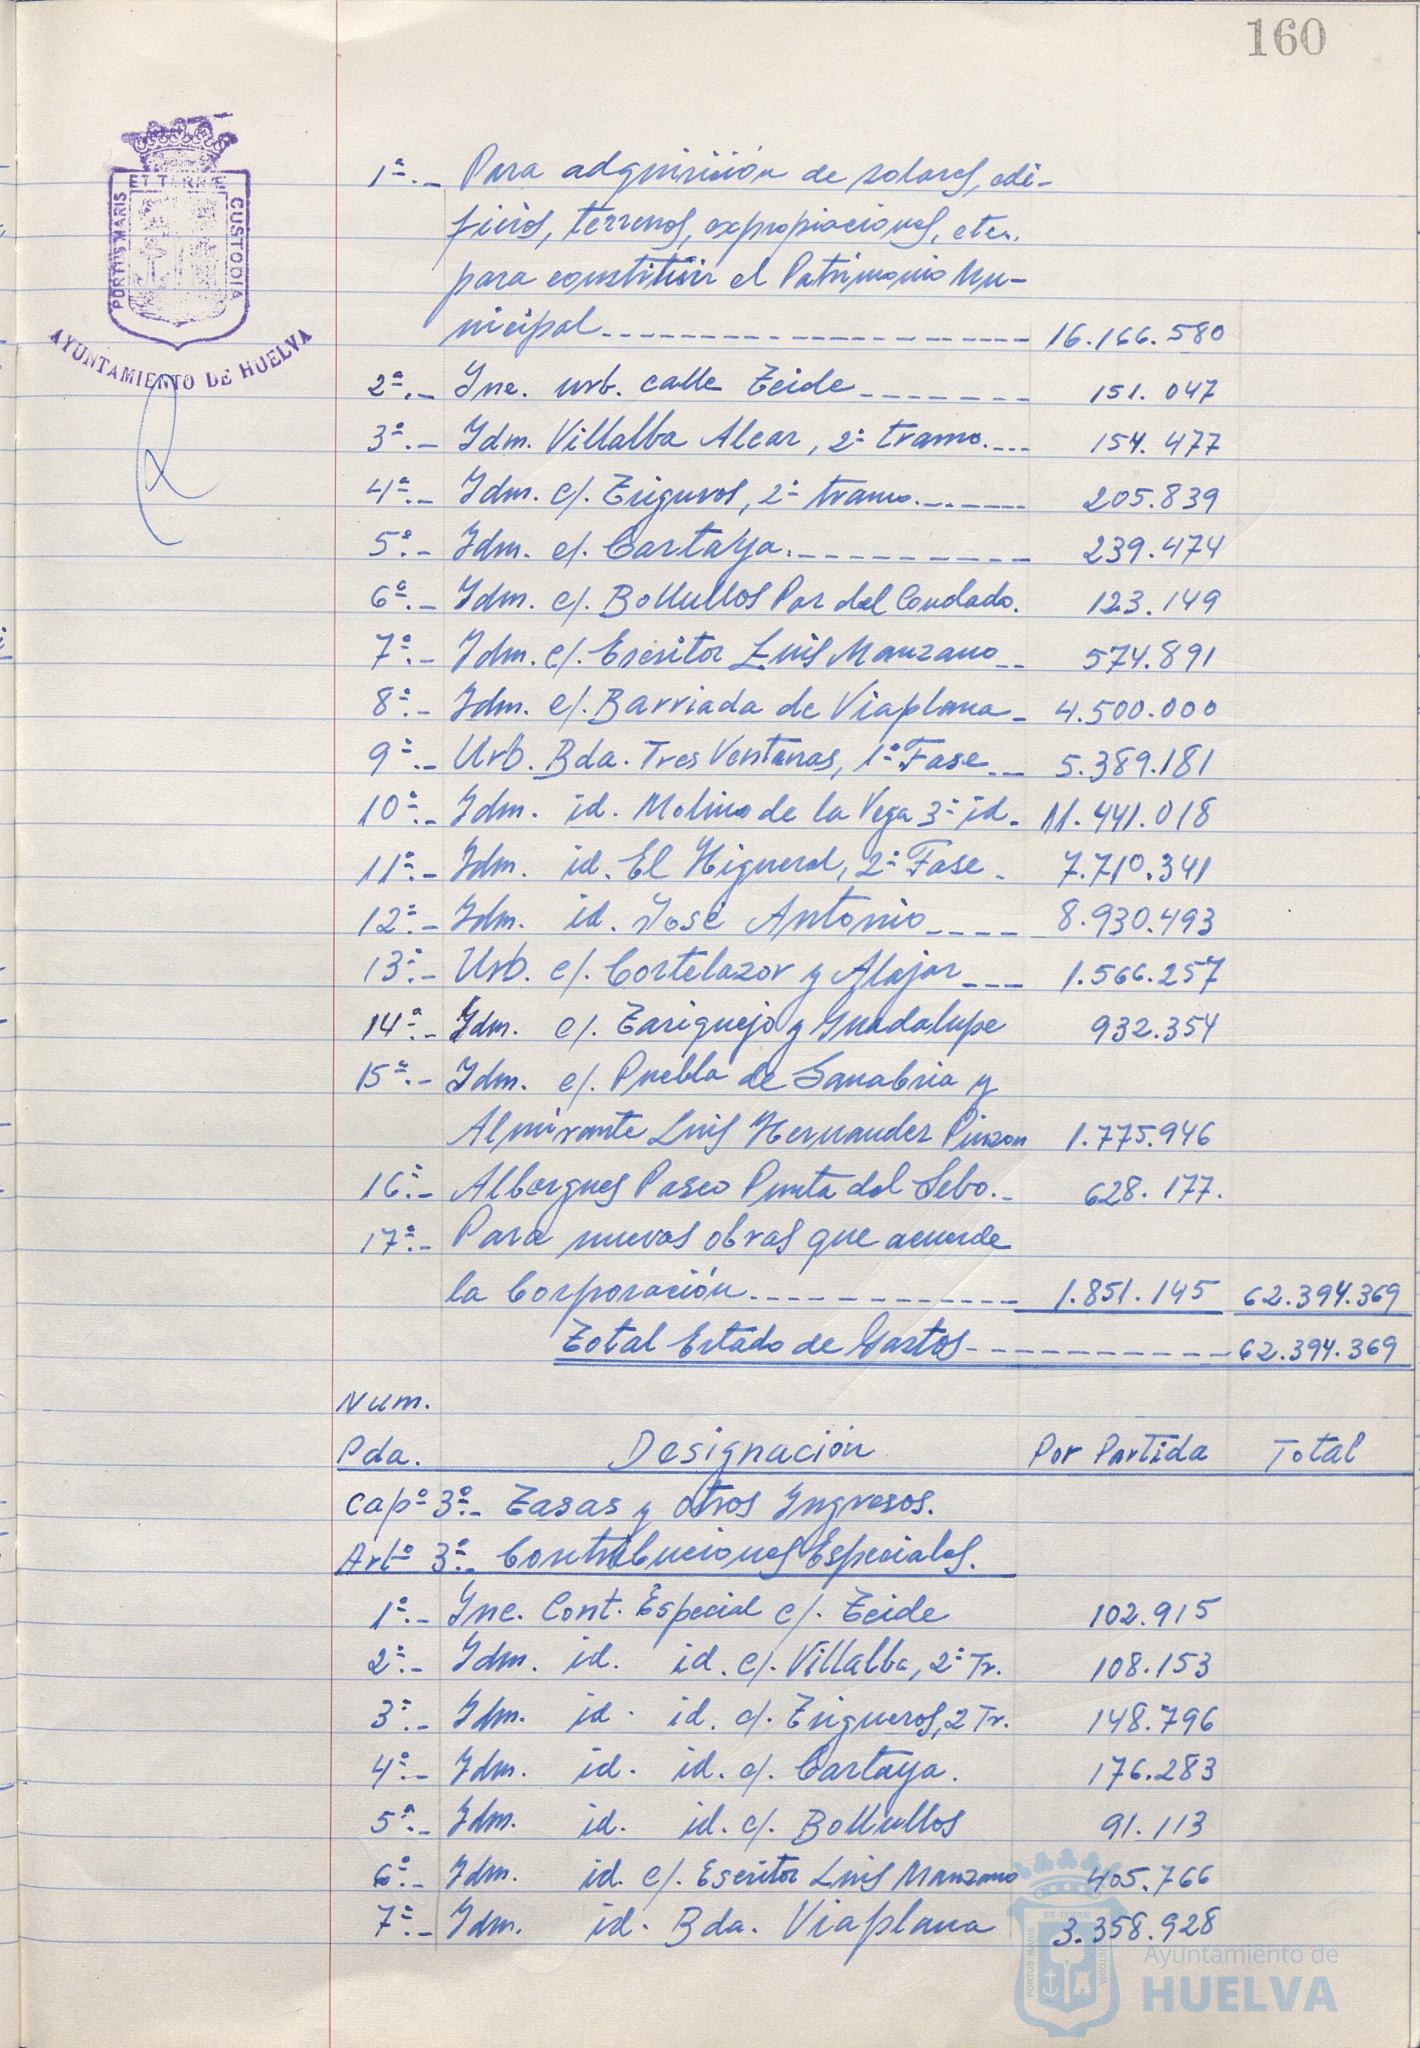 160
ET TERRÆ
PORTUS MARIS
CUSTODIA
AYUNTAMIENTO DE HUELVA
1ª.- Para adquisición de solares, edi-
ficios, terrenos, expropiaciones, etc.
para constituir el Patrimonio Mu-
nicipal 16.166.580
2ª.- Inc. urb. calle Teide 151.047
3ª.- Idm. Villalba Alcar, 2º tramo. 154.477
4ª.- Idm. c/. Trigueros, 2º tramo. 205.839
5ª.- Idm. c/. Cartaya. 239.474
6ª.- Idm. c/. Bollullos Par del Condado. 123.149
7ª.- Idm. c/. Escritor Luis Manzano 574.891
8ª.- Idm. c/. Barriada de Viaplana 4.500.000
9ª.- Urb. Bda. Tres Ventanas, 1ª Fase 5.389.181
10ª.- Idm. id. Molino de la Vega 3ª id. 11.441.018
11ª.- Idm. id. El Higueral, 2ª Fase 7.710.341
12ª.- Idm. id. José Antonio 8.930.493
13ª.- Urb. c/. Cortelazor y Alajar 1.566.257
14ª.- Idm. c/. Tariquejo y Guadalupe 932.354
15ª.- Idm. c/. Puebla de Sanabria y
Almirante Luis Hernandez Pinzon 1.775.946
16ª.- Albergues Paseo Punta del Sebo. 628.177.
17ª.- Para nuevas obras que acuerde
la Corporación 1.851.145 62.394.369
Total Estado de Gastos 62.394.369
Num.
Pda. Designación Por Partida Total
Capº 3º.- Tasas y otros Ingresos.
Artº 3º.- Contribuciones Especiales.
1ª.- Inc. Cont. Especial c/. Teide 102.915
2ª.- Idm. id. id. c/. Villalba, 2º Tr. 108.153
3ª.- Idm. id. id. c/. Trigueros, 2 Tr. 148.796
4ª.- Idm. id. id. c/. Cartaya. 176.283
5ª.- Idm. id. id. c/. Bollullos 91.113
6ª.- Idm. id. c/. Escritor Luis Manzano 405.766
7ª.- Idm. id. Bda. Viaplana 3.358.928
ET TERRÆ
PORTUS MARIS
CUSTODIA
Ayuntamiento de
HUELVA